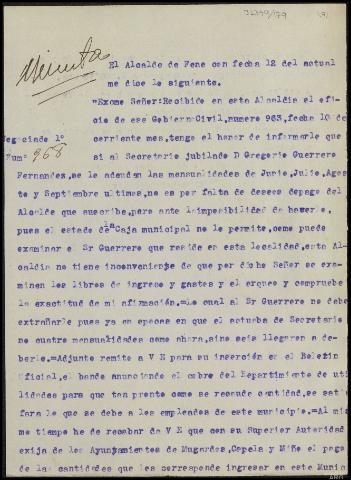 32349/179
(9)
Minuta
El Alcalde de Fene con fecha 12 del actual
me dice lo siguiente.
"Exomo Señor:Recibido en esta Alcaldia el ofi
cio de ese Gobierno Civil, numero 963, fecha 10 de
corriente mes, tengo el honor de informarle que
Negociado 1º
Numº 968
si al Secretario jubilado D Gregorio Guerrero
Fernandez, se le adeudan las mensualidades de Junio, Julio, Agos
to y Septiembre ultimas, no es por falta de deseos depago del
Alcalde que suscribe, pero ante laimposibilidad de hacerlo,
pues el estado de la Caja municipal no le permite, como puede
examinar el Sr Guerrero que reside en esta localidad, esta Al-
caldia no tiene inconveniente de que por dicho Señor se exa-
minen los libros de ingreso y gastos y el arqueo y compruebe
la exactitud de mi afirmación.=Lo cual al Sr Guerrero no debe
extrañarle pues ya en epocas en que el actuaba de Secretario
no cuatro mensualidades como ahora, sino seis llegaron a de-
berle.=Adjunto remito a V E para su inserción en el Boletin
Oficial, el bando anunciando el cobro del Repartimiento de uti
lidades para que tan pronto como se recaude cantidad, se sati
fara lo que se debe a los empleados de este municipio.=Al mis
mo tiempo he de recabar de V E que con su Superior Autoridad
exija de los Ayuntamientos de Mugardos, Capela y Miño el pago
de la cantidades que les corresponde ingresar en este Munic